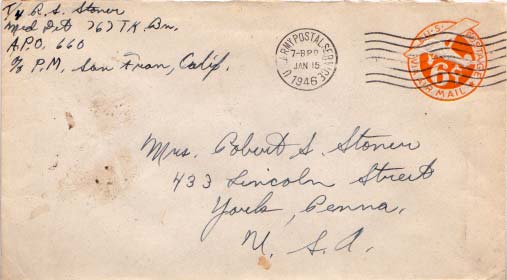 T/4 R. S. Stoner
Med Det 767 TK. Bn.
A.P.O. 660
c/o P.M. San Fran, Calif.
U.S. ARMY POSTAL SERVICE
JAN 15
1946
U.S. POSTAGE
6¢
VIA AIR MAIL
Mrs. Robert S. Stoner
433 Lincoln Street
York, Penna.
U. S. A.